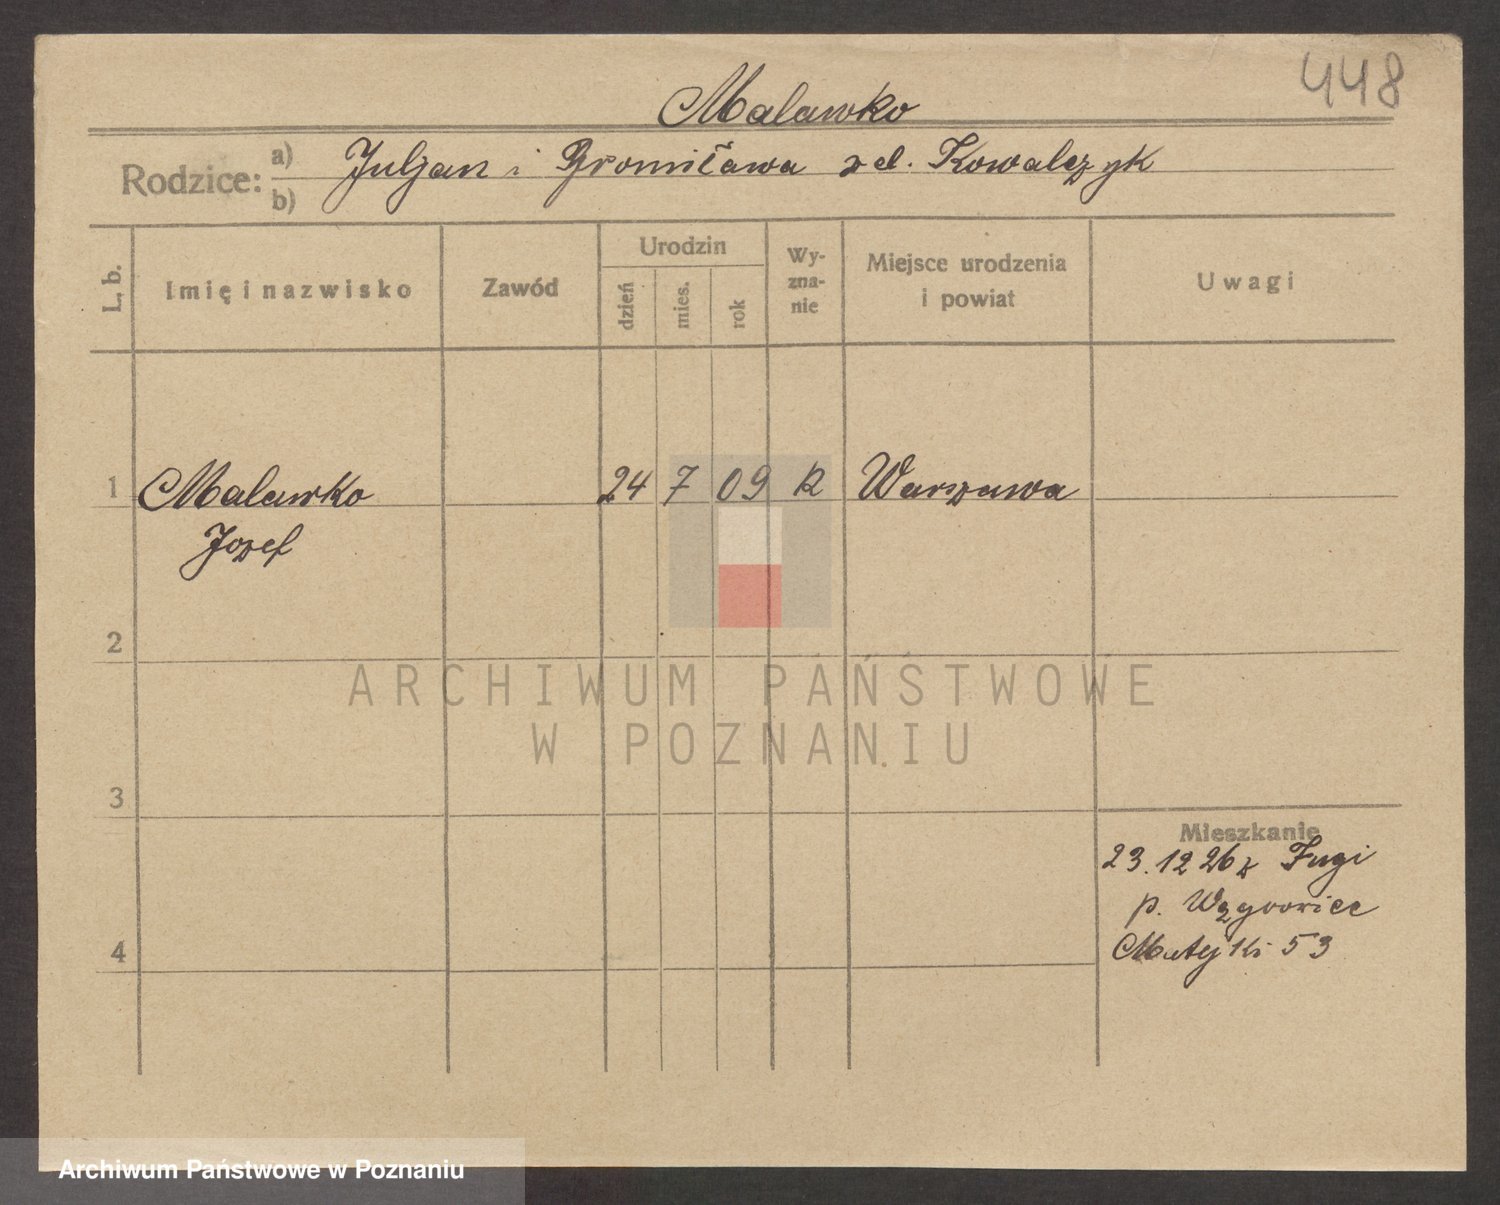 448
Malawko
Rodzice: a) Juljan i Bronisława zd. Kowalczyk
b)
L. b.
Imię i nazwisko
Zawód
Urodzin
dzień
mies.
rok
Wy-
zna-
nie
Miejsce urodzenia
i powiat
Uwagi
1 Malawko 24 7 09 R Warszawa
Jozef
2
3
4
Mieszkanie
23. 12 26 z
p.
Matejki 53
ARCHIWUM PAŃSTWOWE
W POZNANIU
Archiwum Państwowe w Poznaniu